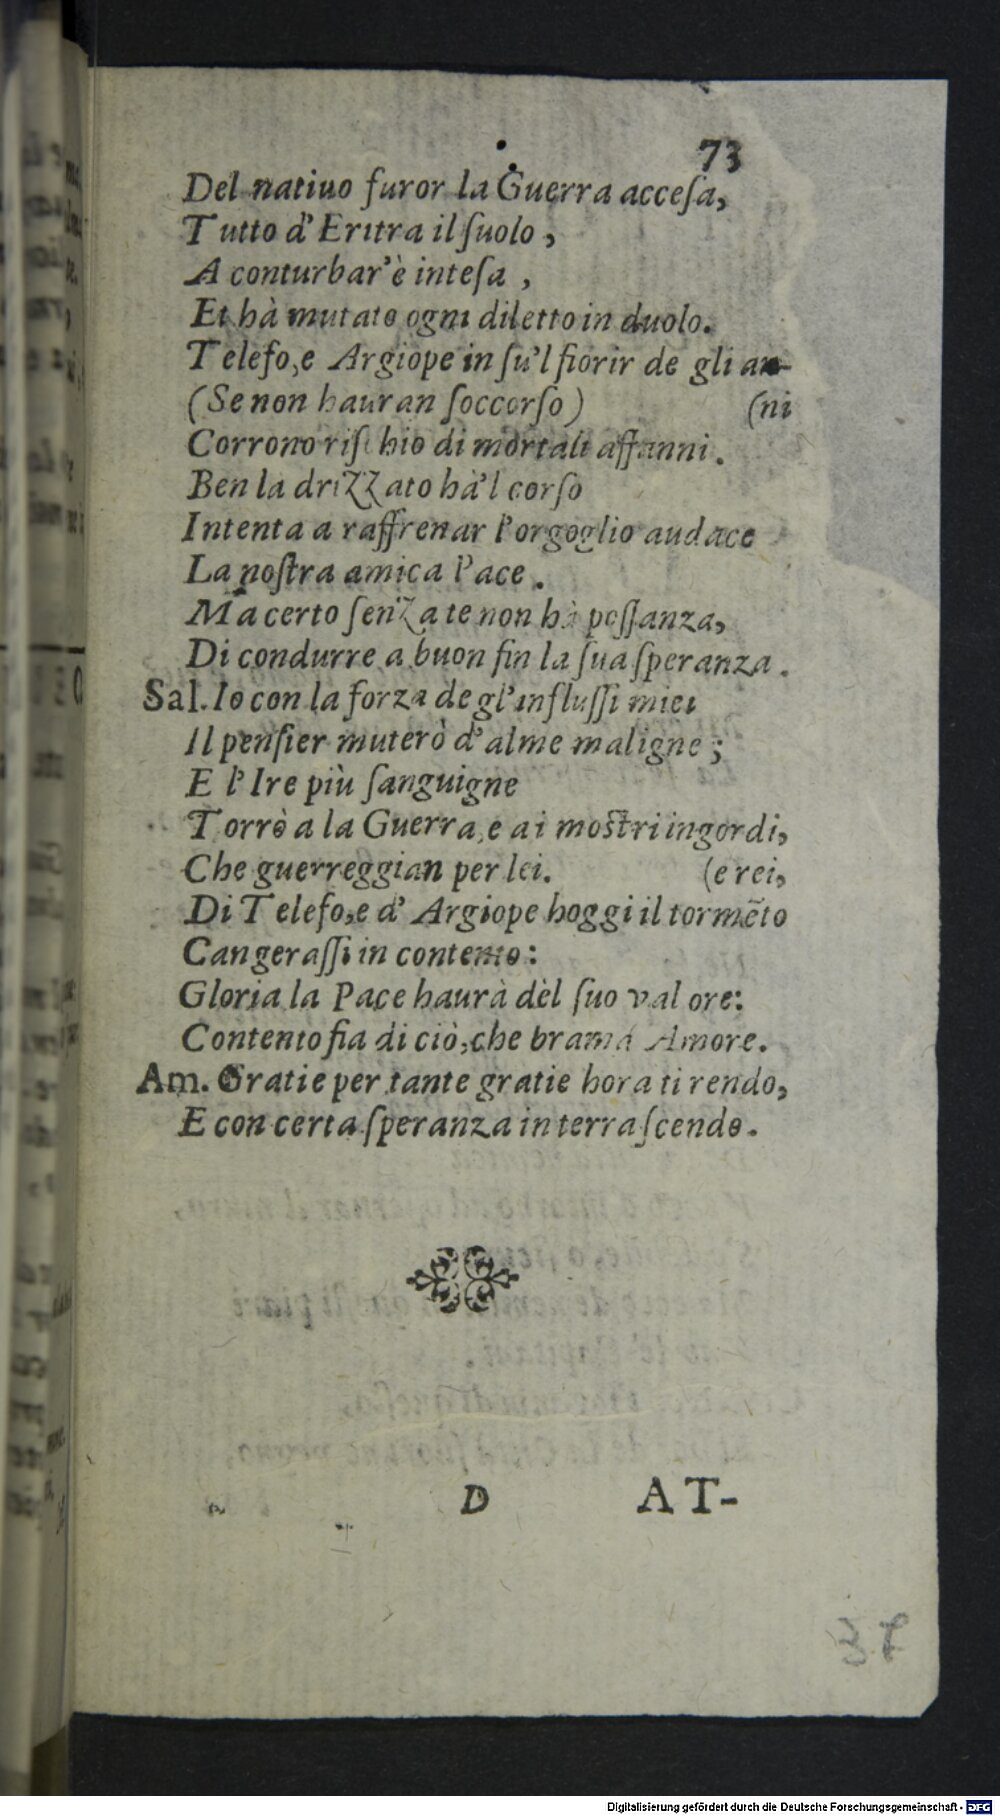 73
Del natiuo furor la Guerra acceſa,
Tutto d'Eritra il ſuolo,
A conturbar'è inteſa,
Et hà mutato ogni diletto in duolo.
Telefo, e Argiope in ſu'l fiorir de gli an-
(Se non hauran ſoccorſo) (ni
Corrono riſchio di mortali affanni.
Ben la drizzato hà'l corſo
Intenta a raffrenar l'orgoglio audace
La noſtra amica Pace.
Ma certo ſenza te non hà poſſanza,
Di condurre a buon fin la ſua ſperanza.
Sal. Io con la forza de gl'influſſi miei
Il penſier muterò d'alme maligne;
E l'Ire più ſanguigne
Torrò a la Guerra, e ai moſtri ingordi,
Che guerreggian per lei. (e rei,
Di Telefo, e d'Argiope hoggi il tormẽto
Cangeraſſi in contento:
Gloria la Pace haurà del ſuo valore:
Contento fia di ciò, che brama Amore.
Am. Gratie per tante gratie hora ti rendo,
E con certa ſperanza in terra ſcendo.
D AT-
37
Digitalisierung gefördert durch die Deutsche Forschungsgemeinschaft - DFG